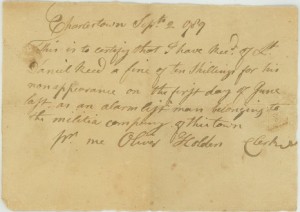 Charlestown Sept. 2 1789
This is to certify that I have Recd. of Lt
Daniel Reed a fine of Ten Shillings for his
nonappearance on the first day of June
last as an alarm list man belonging to
the militia company of this town
pr. me Oliver Holden Clerk